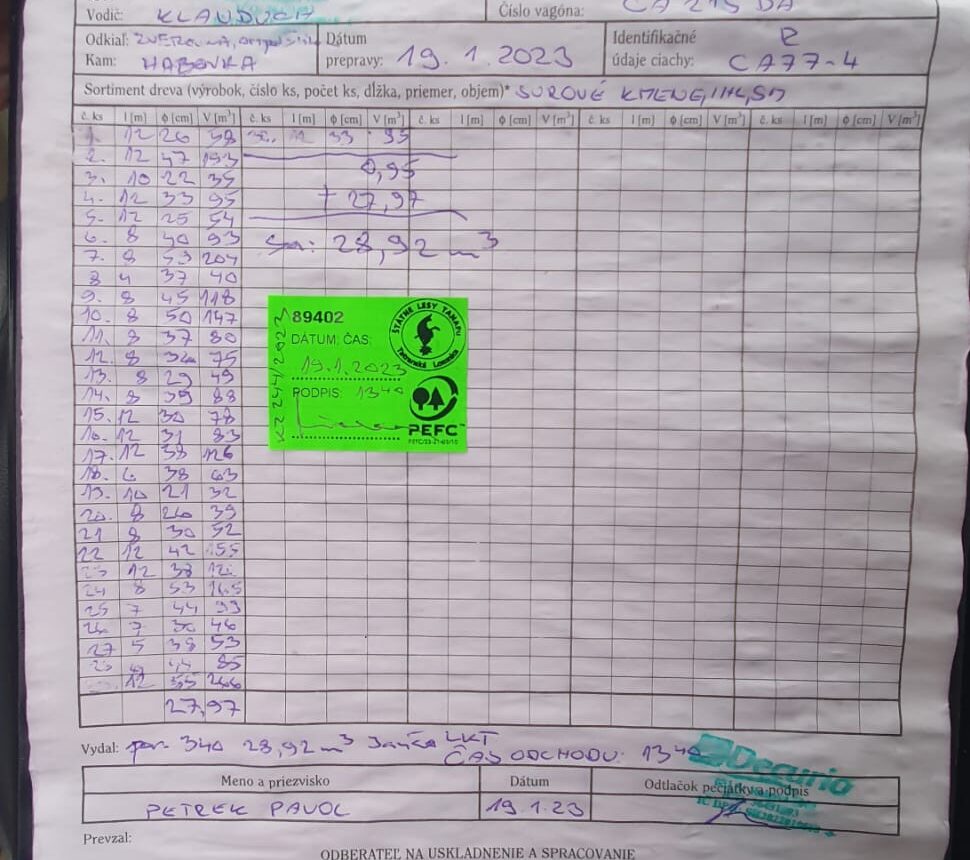 Vodič: KLANDUCH
Číslo vagóna:
Odkiaľ: ZVEROVKA,
Dátum
prepravy: 19.1.2023
Identifikačné
údaje ciachy: CA77-4
R
Kam: HABOVKA
Sortiment dreva (výrobok, číslo ks, počet ks, dĺžka, priemer, objem)* SUROVÉ KMENE, IHL, SM
č. ks l [m] ϕ [cm] V [m³] č. ks l [m] ϕ [cm] V [m³] č. ks l [m] ϕ [cm] V [m³] č. ks l [m] ϕ [cm] V [m³] č. ks l [m] ϕ [cm] V [m³]
1. 12 26 58 30. 12 33 95
2. 12 47 193
0,95
3. 10 22 35
4. 12 33 95
+ 27,97
5. 12 25 54
6. 8 40 93
Sa: 28,92 m³
7. 8 59 204
8 4 37 40
9. 8 45 118
10. 8 50 147
11. 8 37 80
12. 8 75
13. 8 29 49
14. 8 39 88
15. 12 30 78
16. 12 31 83
17. 12 38 126
18. 6 38 63
19. 10 21 32
20. 8 26 39
21 8 30 52
22 12 42 155
23 12 38
24 8 53 165
25 7 44 99
26 7 30 46
27 5 38 53
85
12 55 266
27,97
89402
DÁTUM: ČAS:
19.1.2023
PODPIS: 1340
KZ 244/2023
ŠTÁTNE LESY TANAPU
Tatranská Lomnica
PEFC™
Vydal: por. 340 28,92 m³ LKT
ČAS ODCHODU: 1340
Decuria
Meno a priezvisko Dátum Odtlačok pečiatky a podpis
PETREK PAVOL 19.1.23
Prevzal:
ODBERATEĽ NA USKLADNENIE A SPRACOVANIE